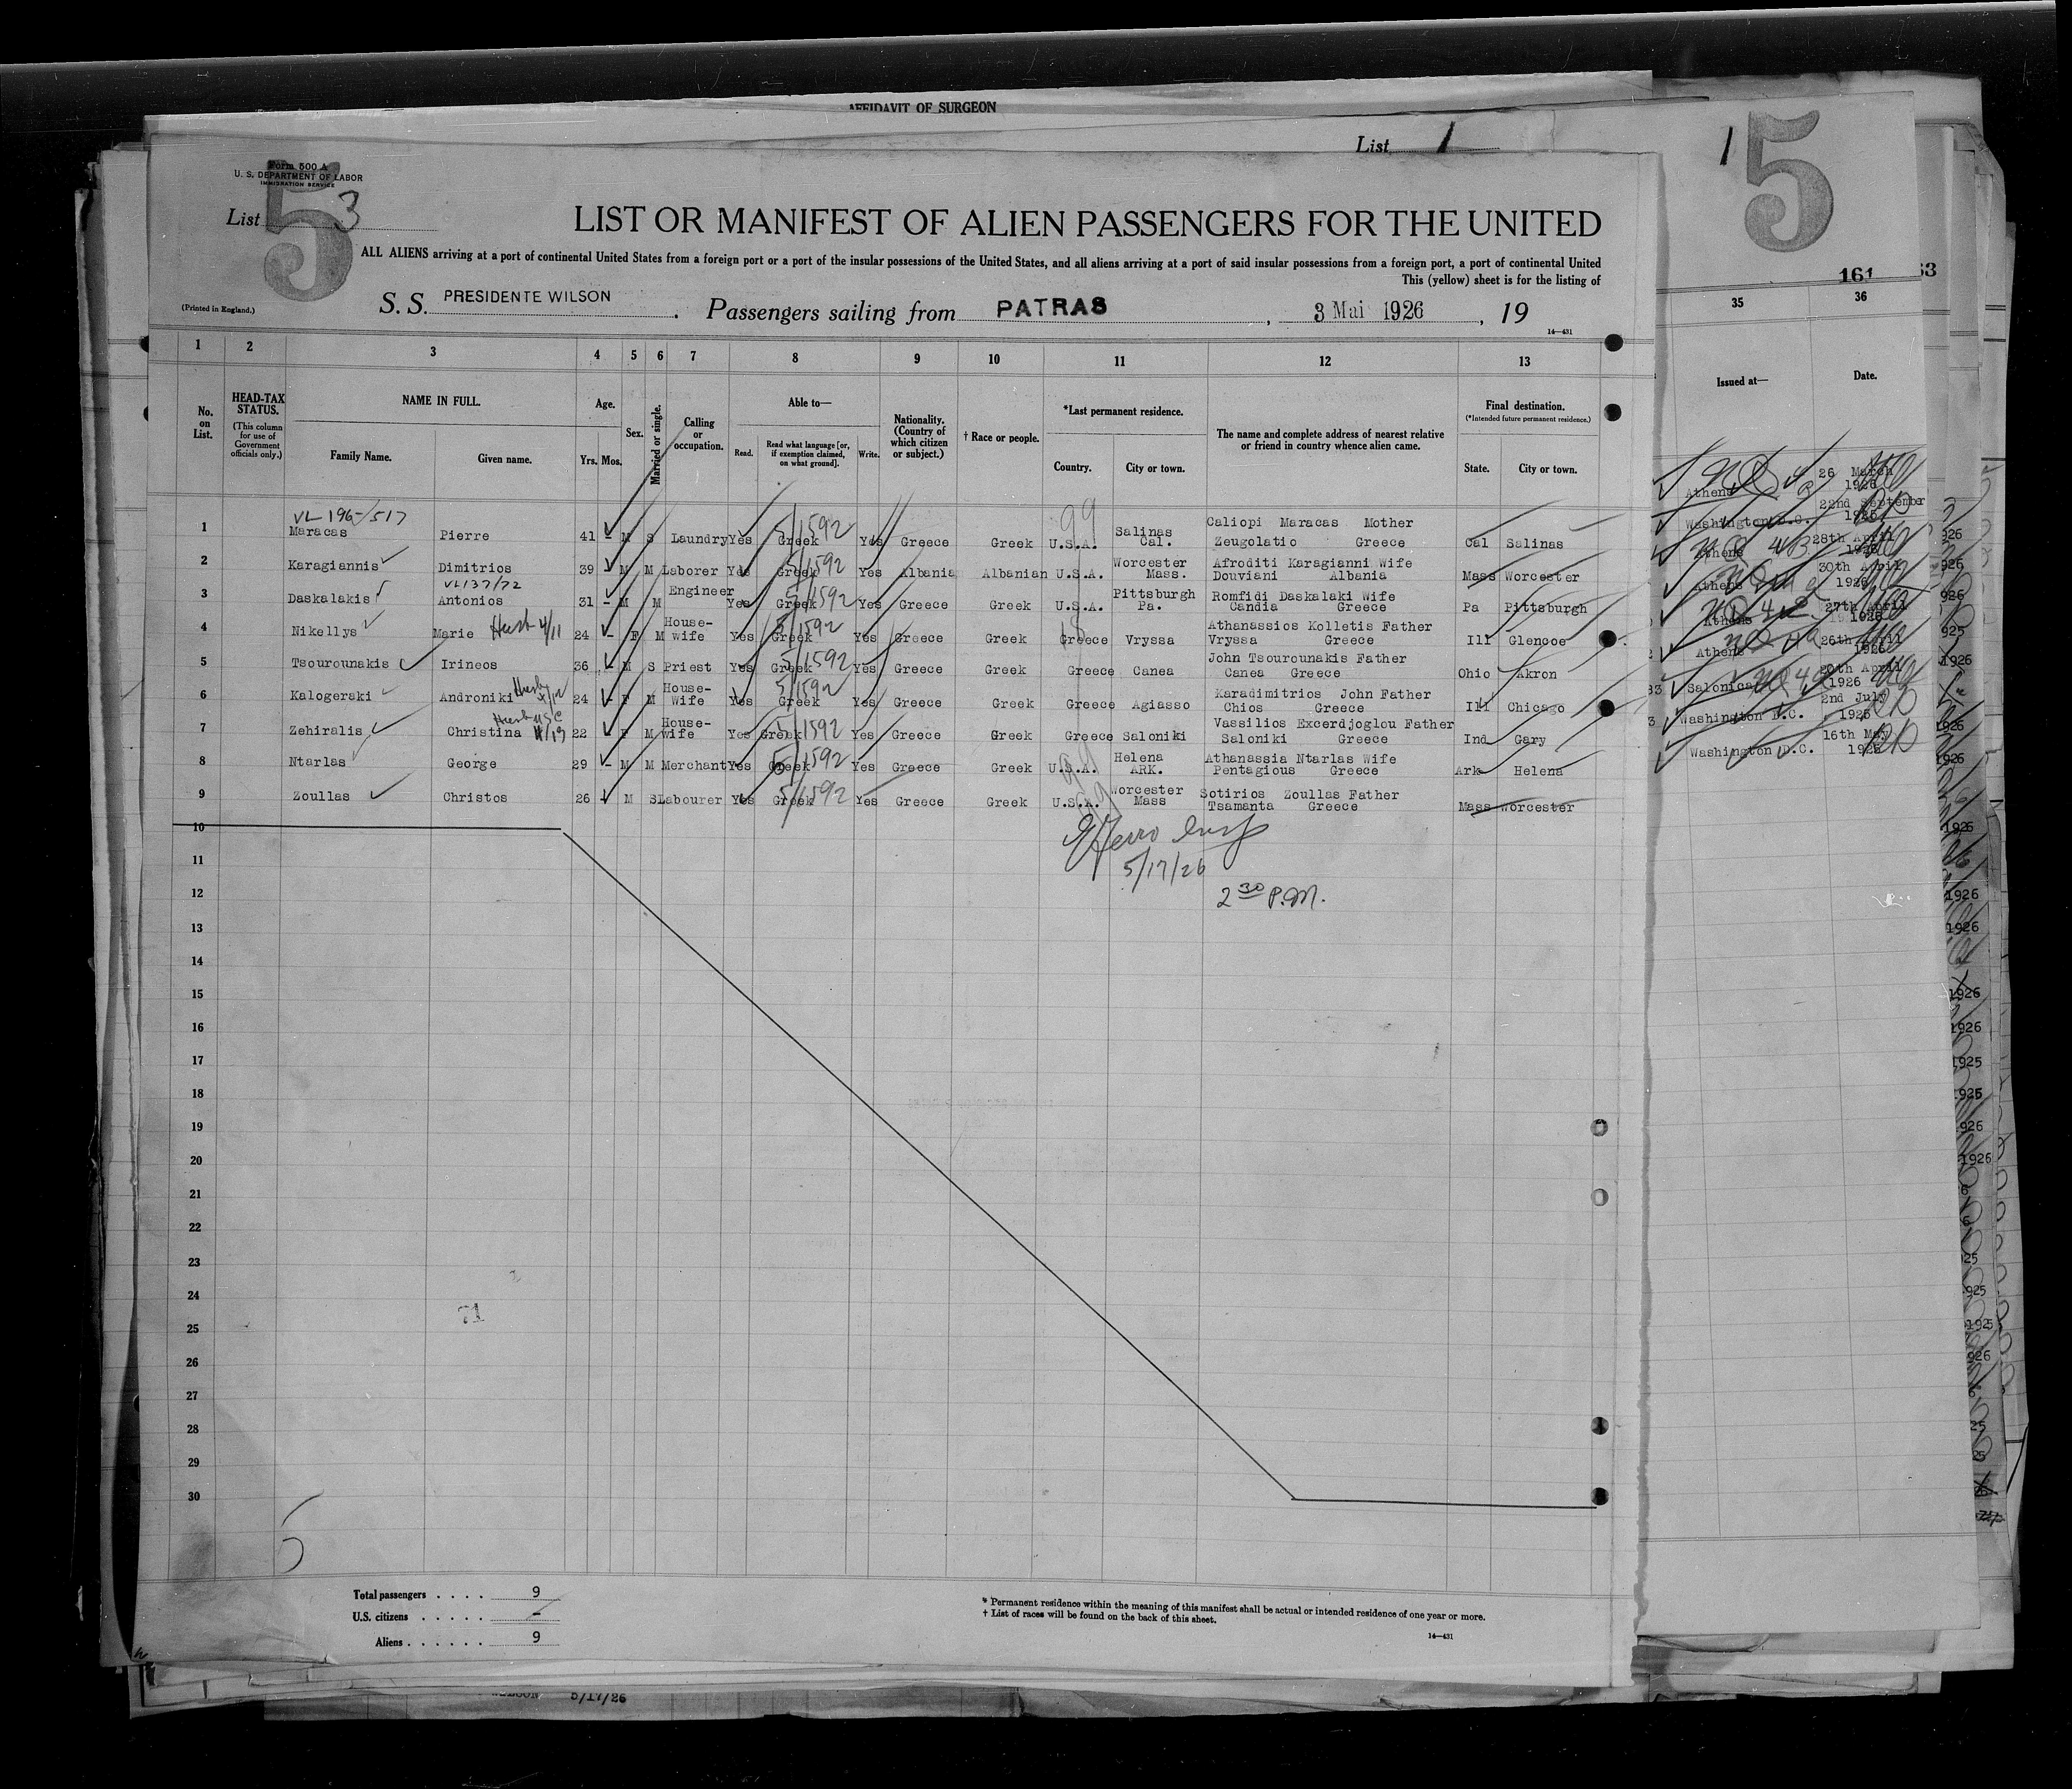 AFFIDAVIT OF SURGEON
List 1
1 5
Form 500 A
U. S. DEPARTMENT OF LABOR
IMMIGRATION SERVICE
List 3
5
LIST OR MANIFEST OF ALIEN PASSENGERS FOR THE UNITED
ALL ALIENS arriving at a port of continental United States from a foreign port or a port of the insular possessions of the United States, and all aliens arriving at a port of said insular possessions from a foreign port, a port of continental United
This (yellow) sheet is for the listing of
(Printed in England.)
S. S. PRESIDENTE WILSON . Passengers sailing from PATRAS , 3 Mai 1926 , 19
14—431
161 63
1 2 3 4 5 6 7 8 9 10 11 12 13
35 36
No. on List.
HEAD-TAX STATUS.
(This column for use of Government officials only.)
NAME IN FULL.
Family Name. Given name.
Age.
Yrs. Mos.
Sex.
Married or single.
Calling or occupation.
Able to—
Read. Read what language [or, if exemption claimed, on what ground]. Write.
Nationality. (Country of which citizen or subject.)
† Race or people.
*Last permanent residence.
Country. City or town.
The name and complete address of nearest relative or friend in country whence alien came.
Final destination.
(*Intended future permanent residence.)
State. City or town.
Issued at— Date.
VL 196-/517
1 Maracas Pierre 41 - M S Laundry Yes Greek 5/1592 Yes Greece Greek U.S.A. Salinas Cal. Caliopi Maracas Mother Zeugolatio Greece Cal Salinas
2 Karagiannis Dimitrios 39 M M Laborer Yes Greek 5/1592 Yes Albania Albanian U.S.A. Worcester Mass. Afroditi Karagianni Wife Douviani Albania Mass Worcester
VL137/72
3 Daskalakis Antonios 31 - M M Engineer Yes Greek 5/1592 Yes Greece Greek U.S.A. Pittsburgh Pa. Romfidi Daskalaki Wife Candia Greece Pa Pittsburgh
4 Nikellys Marie Husb 4/11 24 - F M House-wife Yes Greek 5/1592 Yes Greece Greek Greece Vryssa Athanassios Kolletis Father Vryssa Greece Ill Glencoe
5 Tsourounakis Irineos 36 - M S Priest Yes Greek 5/1592 Yes Greece Greek Greece Canea John Tsourounakis Father Canea Greece Ohio Akron
6 Kalogerski Androniki Husb 24 - F M House-Wife Yes Greek 5/1592 Yes Greece Greek Greece Agiasso Karadimitrios John Father Chios Greece Ill Chicago
7 Zehiralis Christina Husb USC 22 F M House-wife Yes Greek 5/1592 Yes Greece Greek Greece Saloniki Vassilios Excerdjoglou Father Saloniki Greece Ind Gary
8 Ntarlas George 29 - M M Merchant Yes Greek 5/1592 Yes Greece Greek U.S.A. Helena ARK. Athanassia Ntarlas Wife Pentagious Greece Ark Helena
9 Zoullas Christos 26 M S Labourer Yes Greek 5/1592 Yes Greece Greek U.S.A. Worcester Mass Sotirios Zoullas Father Tsamanta Greece Mass Worcester
Athens 26 March 1926
Washington D.C. 22nd September 1925
Athens 28th April 1926
Athens 30th April 1926
Athens 27th April 1926
Athens 26th April 1926
Salonica 20th April 1926
Washington D.C. 2nd July 1925
Washington D.C. 16th May 1925
5/17/26
2 30 P.M.
10
11
12
13
14
15
16
17
18
19
20
21
22
23
24
25
26
27
28
29
30
Total passengers . . . . 9
U.S. citizens . . . . . . -
Aliens . . . . . . 9
* Permanent residence within the meaning of this manifest shall be actual or intended residence of one year or more.
† List of races will be found on the back of this sheet.
14—431
5/17/26